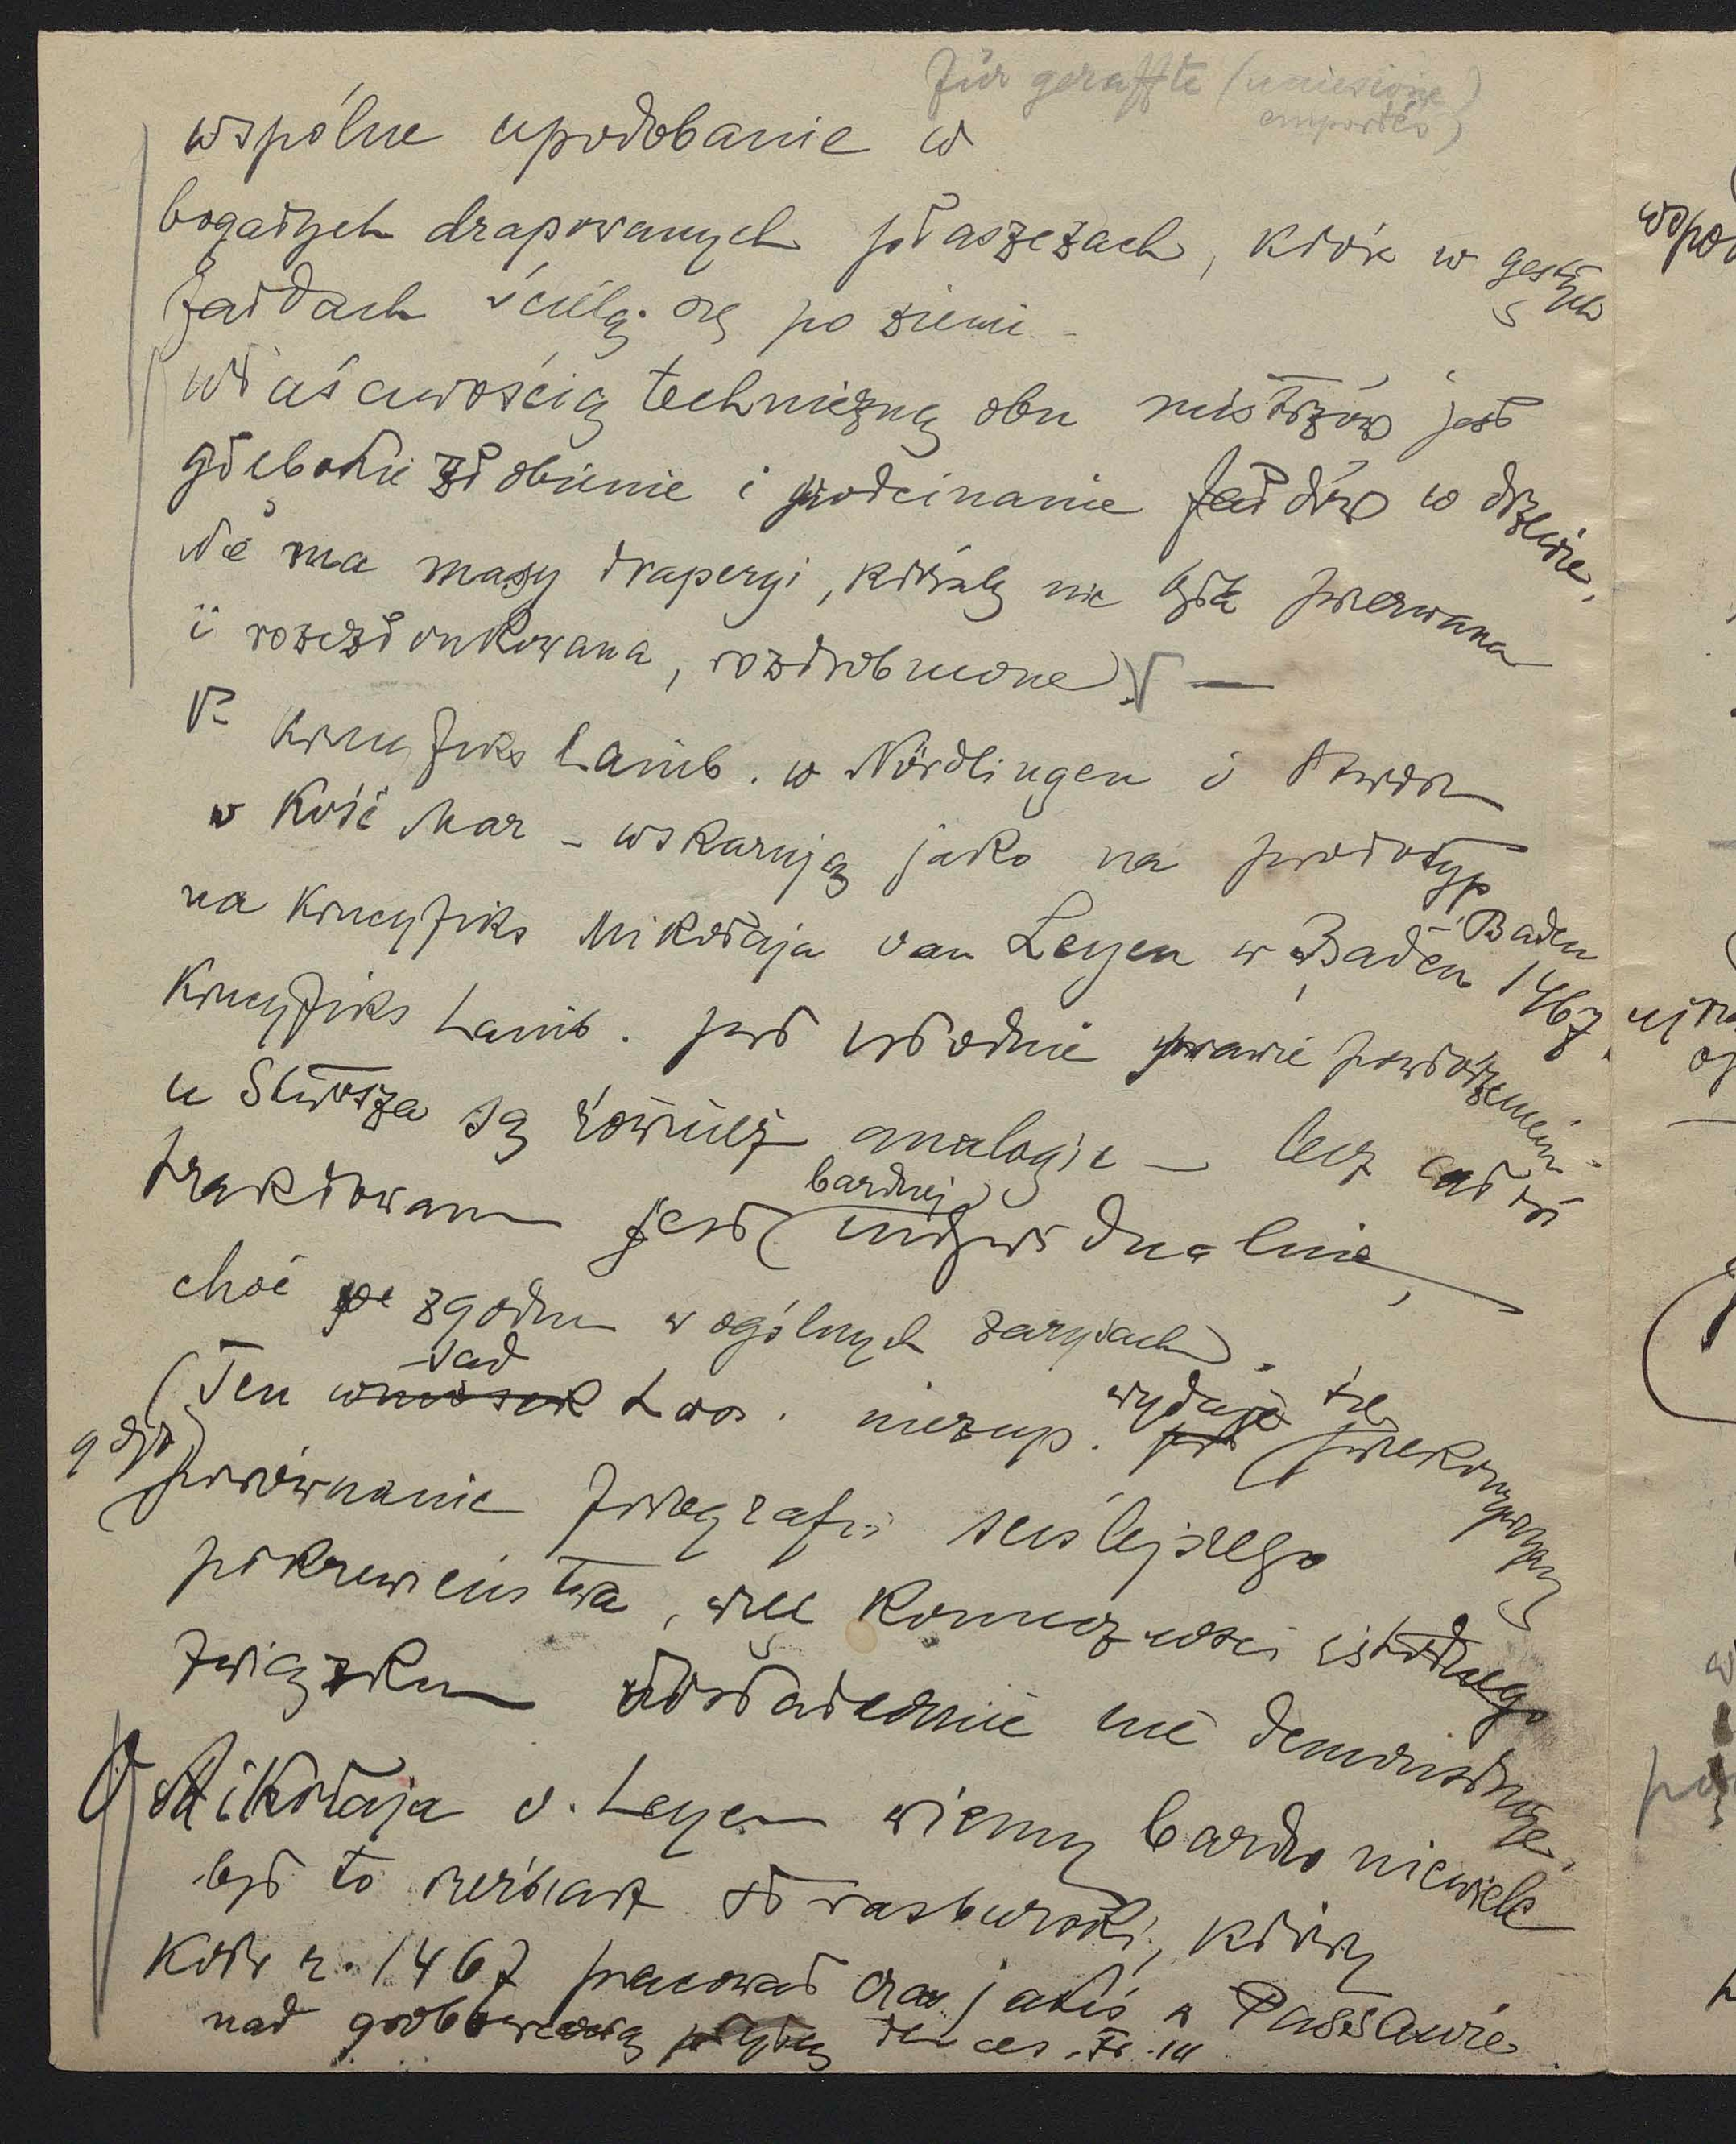 für geraffte (uniesione)
emportés)
wspólne upodobanie w
bogatych drapowanych płaszczach, które w gęstych
fałdach ścielą się po ziemi –
właściwością techniczną obu mistrzów jest
głębokie żłobienie i podcinanie fałdów w drzewie,
Nie ma masy draperyi, któraby nie była przerwana
i rozczłonkowana, rozdrobnione) —
Krucyfiks Lainb. w Nördlingen i Stwosza
w Kość Mar – wskazują jako na prototyp
na Krucyfiks Mikołaja van Leyen w Baden-Baden 1467.
Krucyfiks Lainb. jest istotnie prawie powtórzeniem –
u Stwosza są również analogie — lecz całość
traktowana jest bardziej indywidualnie,
choć zgodna w ogólnych zarysach.
(Ten wniosek sąd Loss. niezup. wydaje się przekonywający
gdyż) porównanie fotografii ściślejszego
pokrewieństwa, więc konieczności istotnego
związku dostatecznie nie demonstruje.
O Mikołaja v. Leyen wiemy bardzo niewiele
był to rzeźbiarz strasburski, który
Koło r. 1467 pracował czas jakiś w Passawie
nad grobbowcową płytą dla ces. Fr. III